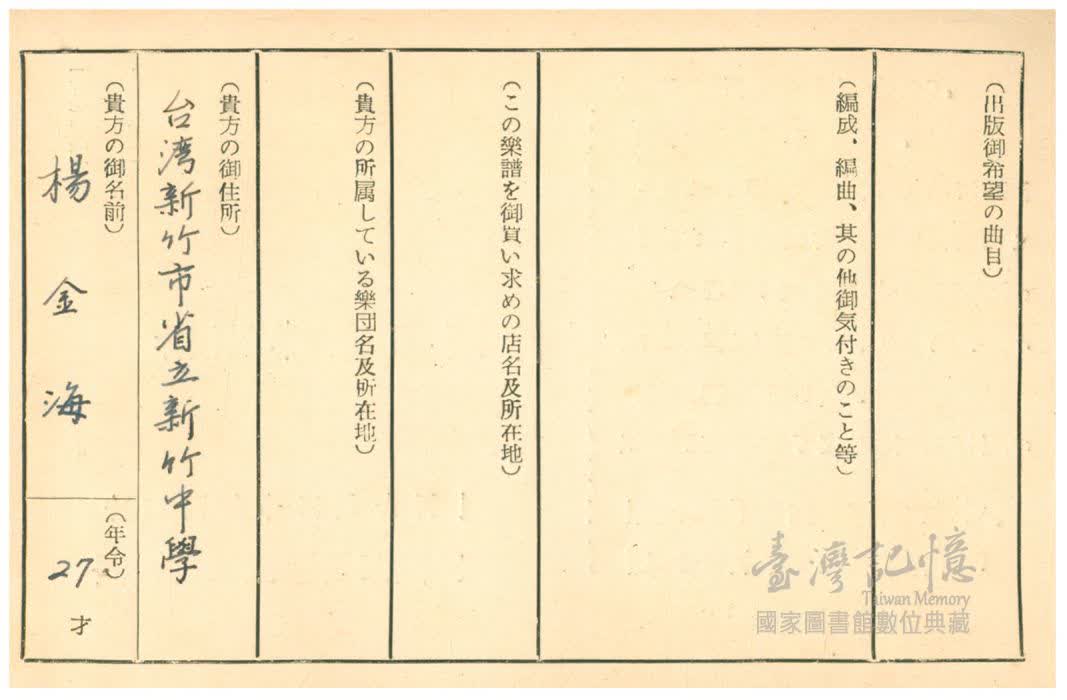 (出版御希望の曲目)
(編成、編曲、其の他御気付きのこと等)
(この樂譜を御買い求めの店名及所在地)
(貴方の所属している樂団名及所在地)
(貴方の御住所)
台湾新竹市省立新竹中學
(貴方の御名前)
楊金海
(年令)
27才
臺灣記憶
Taiwan Memory
國家圖書館數位典藏